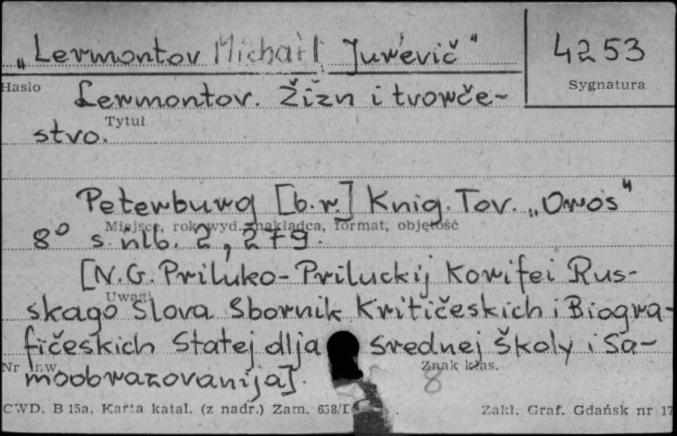 „Lermontov Michaił Jur'evič" 4253
Hasło Sygnatura
Lermontov. Žizn i tvorče-
Tytuł
stvo.
Peterburg [b.r.] Knig. Tov. „Oros"
Miejsce, rok wyd. nakładca, format, objętość
8° s. nlb. 2, 279.
[N.G. Priluko-Priluckij Korifei Rus-
Uwagi
skago Slova Sbornik Kritičeskich i Biogra-
fičeskich Statej dlja srednej Školy i Sa-
Nr inw. Znak klas.
moobrazovanija]. 8
CWD. B 15a. Karta katal. (z nadr.) Zam. 658/I Zakł. Graf. Gdańsk nr 17